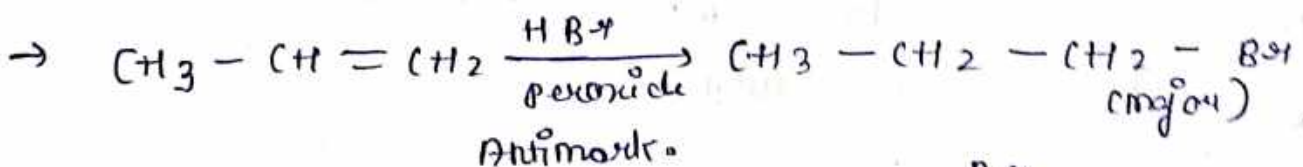 → CH3 - CH = CH2 HBr peroxide → CH3 - CH2 - CH2 - Br
(major)
Antimark.